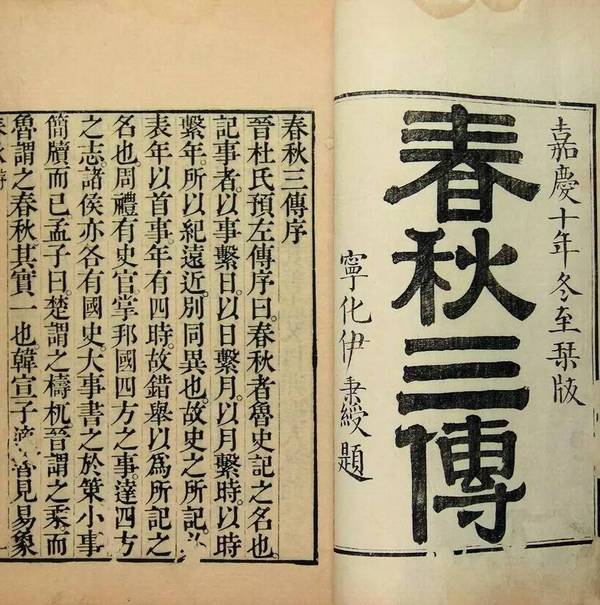 嘉慶十年冬至栞版
春秋三傳
寧化伊秉綬題
春秋三傳序
晉杜氏預左傳序曰。春秋者魯史記之名也。
記事者。以事繫日。以日繫月。以月繫時。以時
繫年。所以紀遠近。別同異也。故史之所記。必
表年以首事。年有四時。故錯舉以為所記之
名也。周禮有史官。掌邦國四方之事。達四方
之志。諸侯亦各有國史。大事書之於策。小事
簡牘而已。孟子曰。楚謂之檮杌。晉謂之乘。而
魯謂之春秋。其實一也。韓宣子適魯。見易象